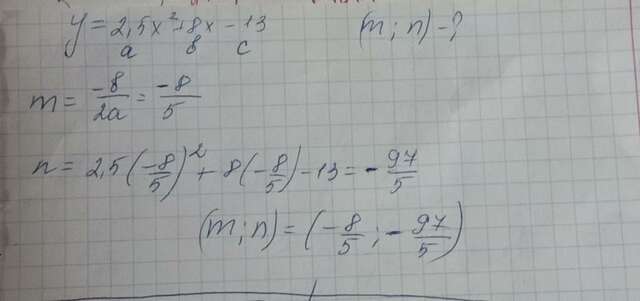 y = 2,5x² + 8x - 13 (m; n) - ?
a b c
m = -8/2a = -8/5
n = 2,5(-8/5)² + 8(-8/5) - 13 = - 97/5
(m; n) = (-8/5; - 97/5)